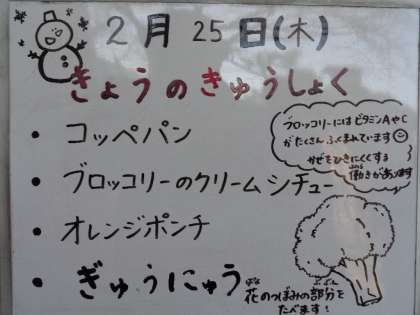 2月25日(木)
きょうのきゅうしょく
・コッペパン
・ブロッコリーのクリームシチュー
・オレンジポンチ
・ぎゅうにゅう
ブロッコリーにはビタミンAやC
がたくさんふくまれています
かぜをひきにくくする
働きがあります
はたら
花のつぼみの部分を
はな
ぶぶん
たべます!